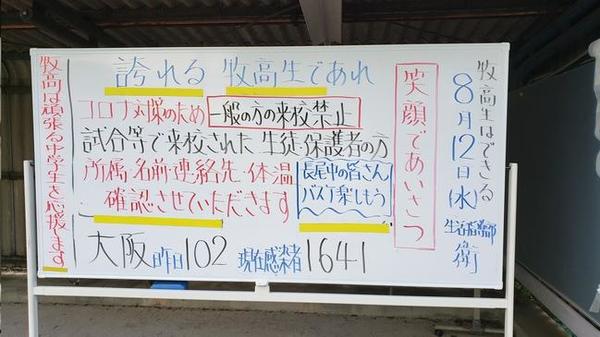 誇れる 牧高生であれ
コロナ対策のため 一般の方の来校禁止
試合等で来校された 生徒・保護者の方
所属・名前・連絡先・体温
確認させていただきます
長尾中の皆さん
バスケ楽しもう
大阪 昨日102 現在感染者1641
笑顔であいさつ
牧高生はできる
8月12日(水)
生活指導部
衛
牧高は頑張る中学生を応援します